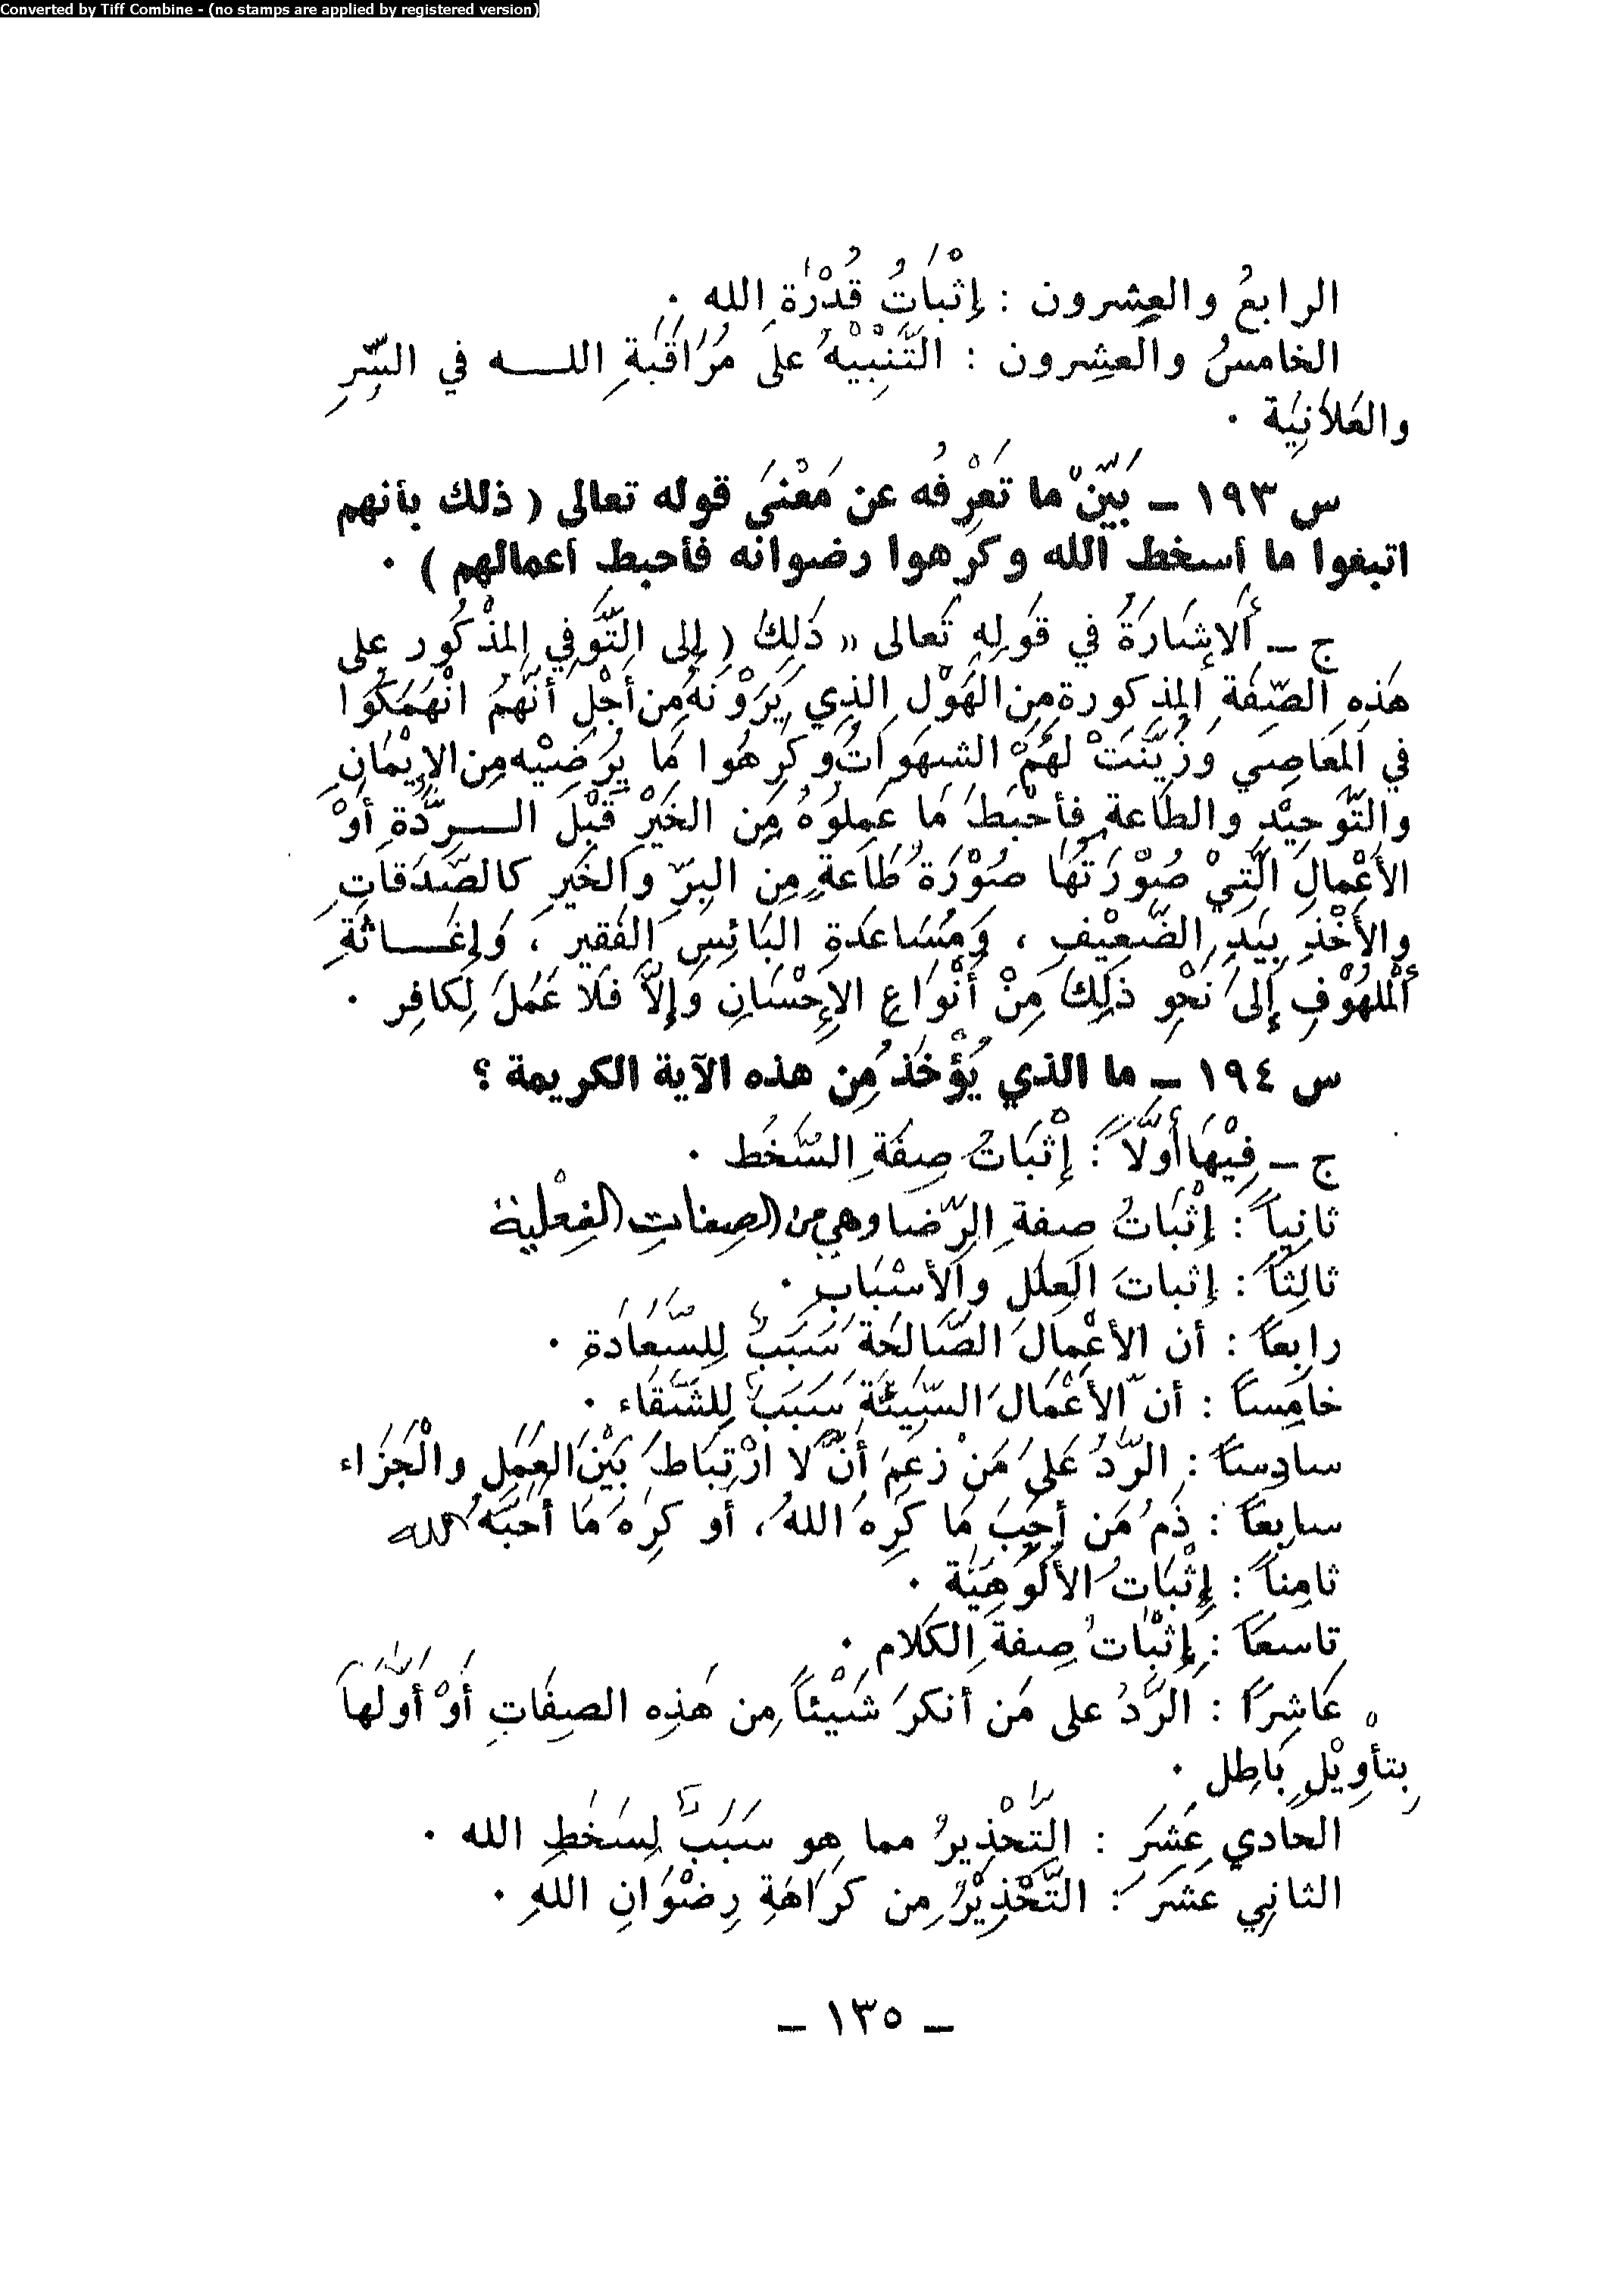 Converted by Tiff Combine - (no stamps are applied by registered version)
الرابعُ والعِشرون : إثْباتُ قُدْرَةِ الله .
الخامسُ والعِشرون : التَّنْبِيْهُ علَى مُرَاقَبَةِ اللـــه في السِّرِ
والعَلاَنِيَة .
س ١٩٣ – بَيِّنْ ما تَعْرِفُه عن مَعْنَى قوله تعالى ( ذلك بأنهم
اتبعوا ما أسخط الله وكَرهوا رضوانه فأحبط أعمالهم ) .
ج – أَلإشَارَةُ في قَولِهِ تَعالى « ذَلِكَ ( إلى التَّوَفِي المذْكُور على
هَذِهِ الصِّفَةِ المذكورة مِن الهَوْلِ الذِي يَرَوْنَهُ مِن أجْلِ أنَّهمُ انْهَمَكُوا
في المَعَاصِي وَزُيِّنَتْ لَهُمْ الشهَوَاتُ وكَرِهُوا مَا يُرْضِيْه مِن الإيْمَانِ
والتَّوحِيْدِ والطَاعةِ فأحْبَطَ مَا عَمِلوهُ مِن الخَيْرِ قَبْلَ الــرِدَّةِ أَوْ
الأَعْمالِ الَّتِيْ صُوْرَتُهَا صُوْرَةُ طَاعَةٍ مِن البِرِّ والخَيرِ كالصَّدَقاتِ
والأَخْذِ بِيَدِ الضَّعِيْفِ ، وَمُسَاعَدَةِ البَائِسِ الفَقيرِ ، وَإغَـــاثَةِ
أَلْملهُوْفِ إلَى نَحْوِ ذَلِكَ مِنْ أنْوَاعِ الإحْسَانِ وَإلاَّ فَلا عَمَلَ لِكافِر .
س ١٩٤ – ما الذي يُؤْخَذُ مِن هذه الآية الكريمة ؟
ج – فِيْهَا أَوَّلاً : إثْبَاتُ صِفَةِ السَّخَط .
ثانِياً : إثْبَاتُ صِفةِ الرِّضا وهي من الصِفاتِ الفِعْلية
ثالِثاً : إثباتَ العِلَلِ والأسْبَابِ .
رابِعاً : أن الأعْمالَ الصَّالحَةَ سَبَبٌ لِلسَّعَادَةِ .
خامِساً : أنّ الأعْمَالَ السَّيِئَةَ سَبَبٌ لِلشَّقَاء .
سادِساً : الرَّدُ عَلَى مَنْ زعَمَ أنَّ لا ارْتِبَاطَ بَيْنَ العَمَلِ والْجَزَاء
سابِعاً : ذَمُ مَن أحَبَ مَا كَرِهَ اللهُ ، أو كرِهَ مَا أحَبَّهُ الله
ثامِناً : إثْبَاتُ الألُوهِيَّة .
تاسعاً : إثْبَاتُ صِفةِ الكَلام .
عَاشِرًا : الرَّدُ على مَن أنكرَ شَيْئاً مِن هَذِه الصِفَاتِ أوْ أوَّلَها
بِتأْوِيْلٍ بَاطِل .
الحادي عَشَرَ : التَّحْذِيرُ مما هو سَبَبٌ لِسَخَطِ الله .
الثانِي عَشَرَ : التَّحْذِيْرُ مِن كَرَاهَةِ رِضْوَانِ اللهِ .
– ١٣٥ –